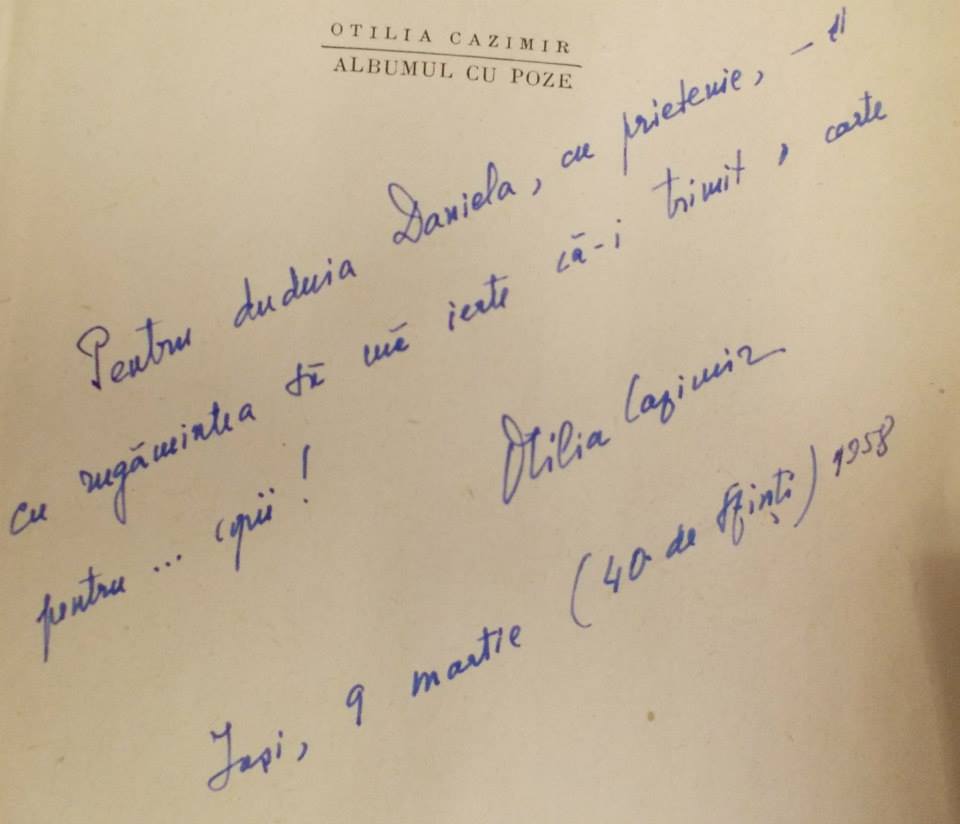 OTILIA CAZIMIR
ALBUMUL CU POZE
Pentru duduia Daniela, cu prietenie, – și
cu rugămintea să mă ierte că-i trimit o carte
pentru... copii!
Otilia Cazimir
Iași, 9 martie (40 de Sfinți) 1958